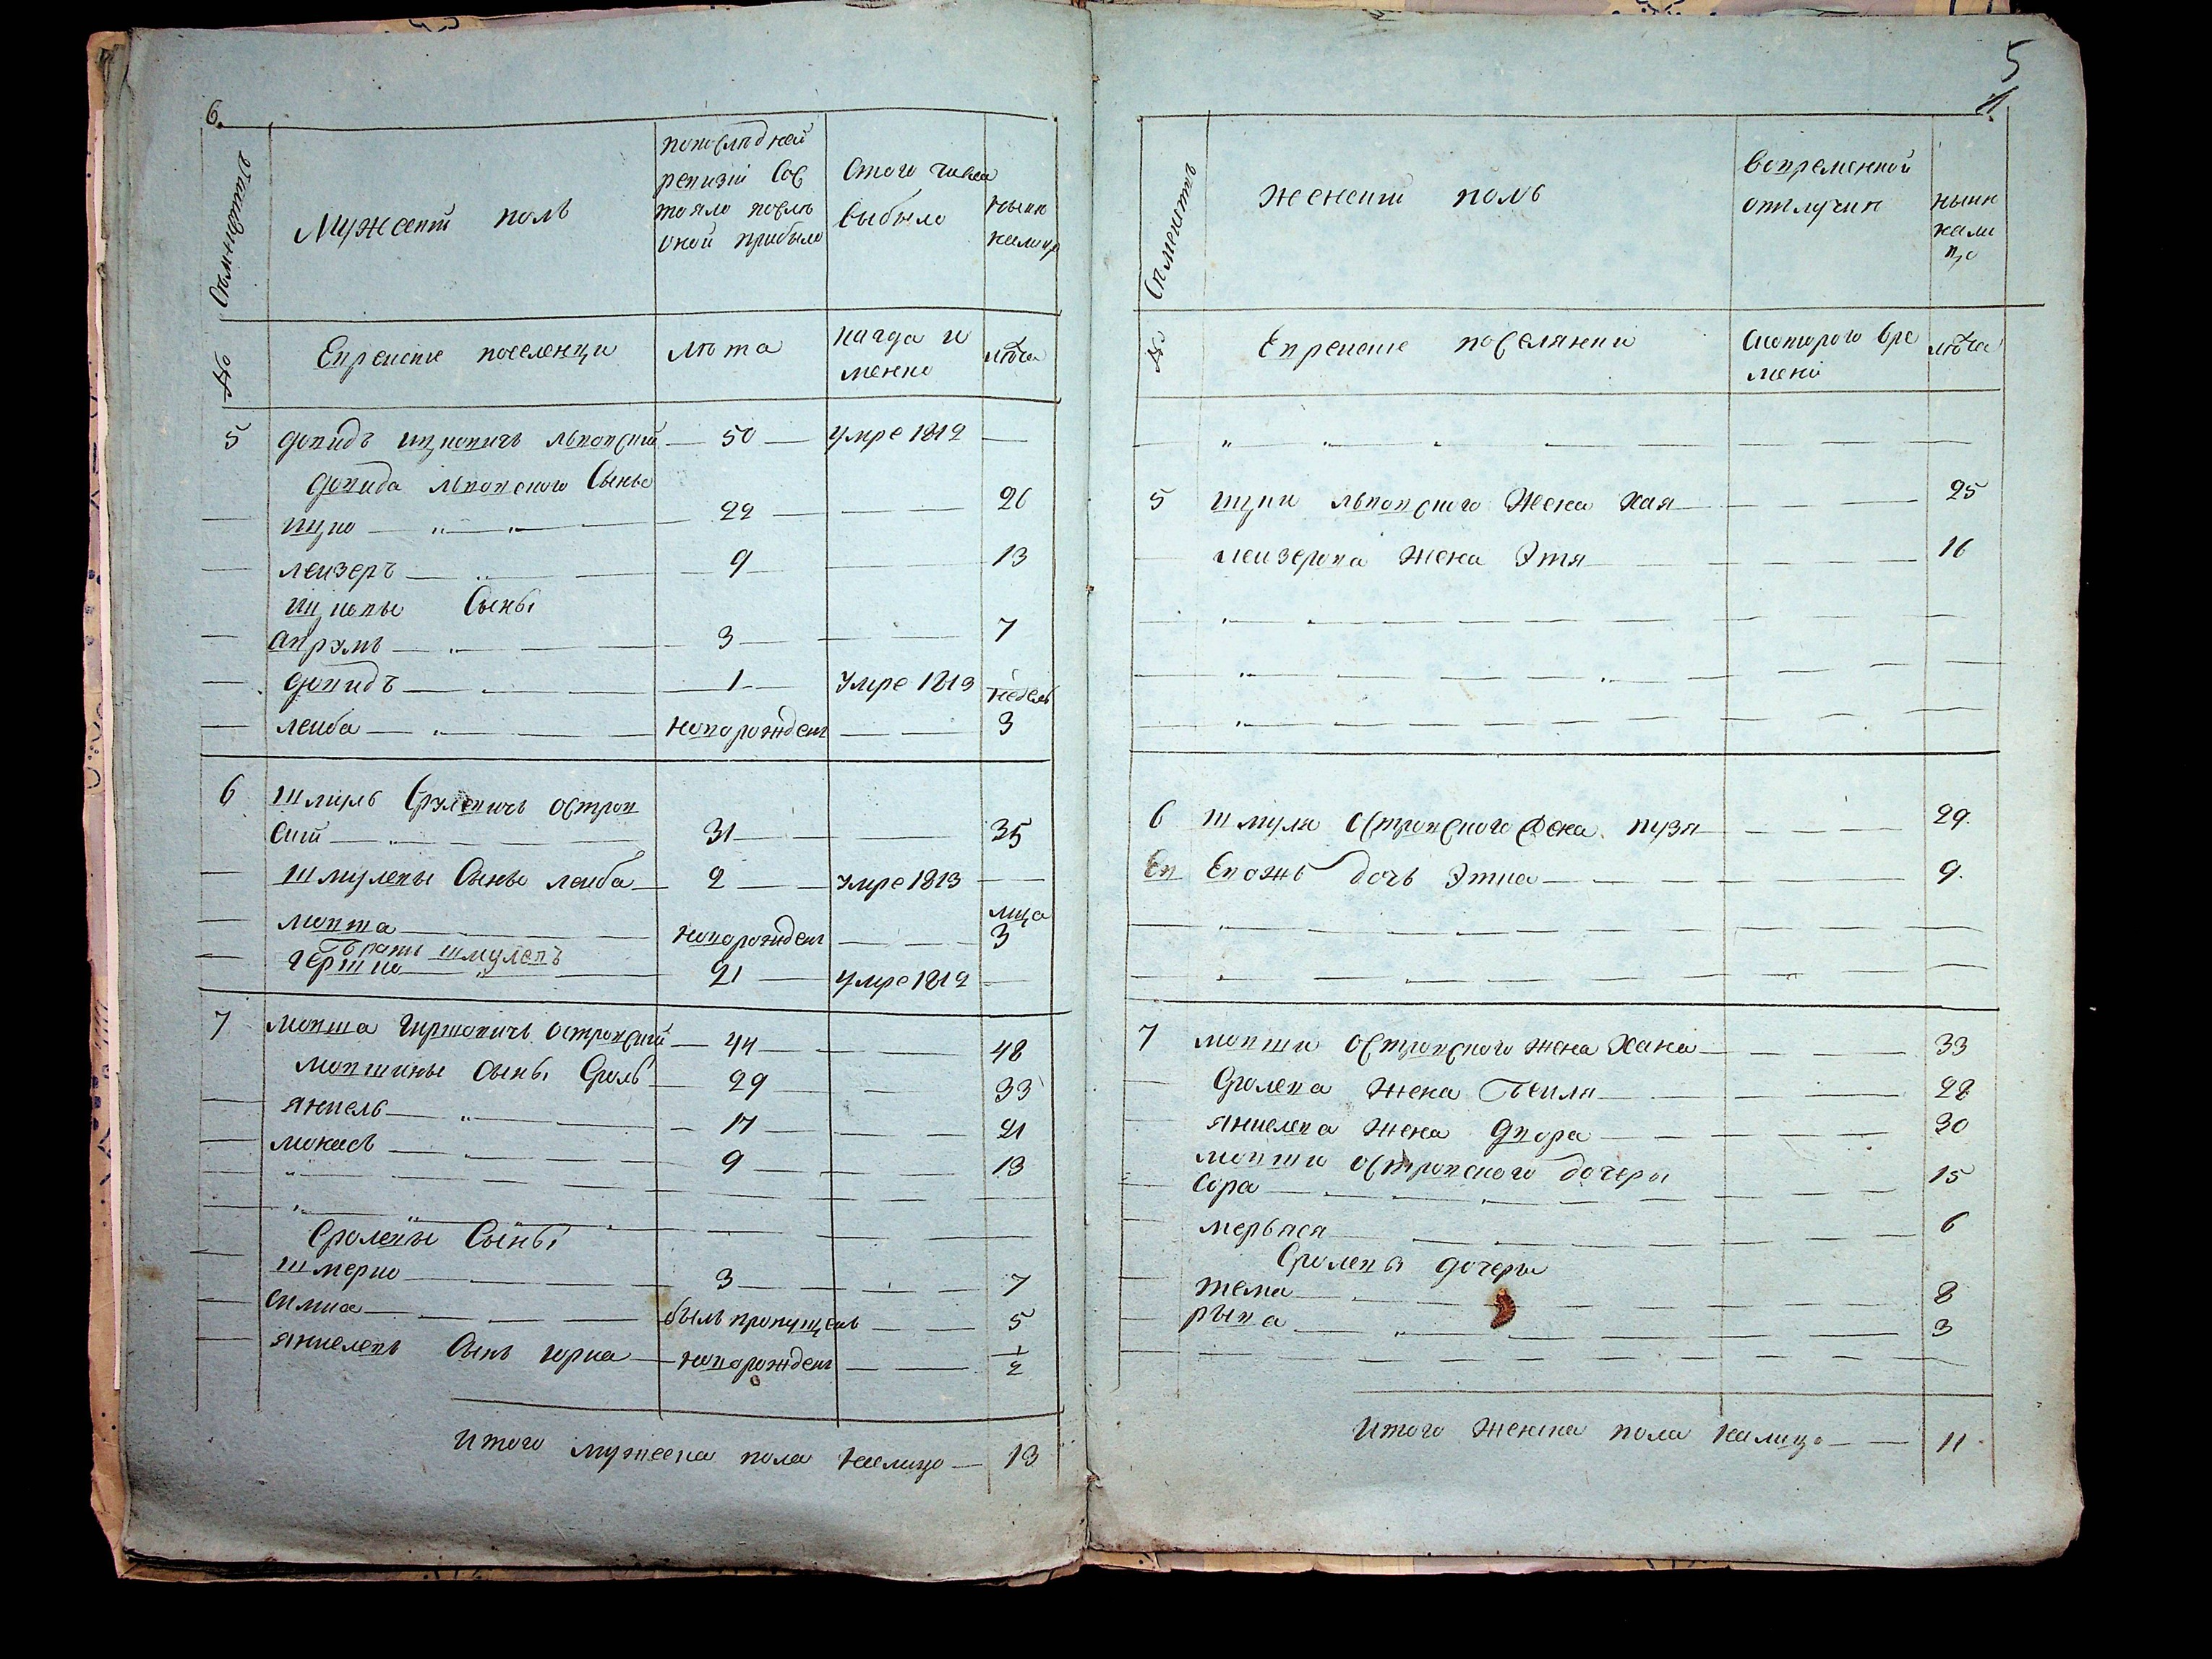 6.
Семействъ
Мужескій полъ
попоследней
ревизіи Сос
тояло послѣ
оной прибыло
Стого числа
выбыло
ныне
налицо
№
Еврейские поселенци
лѣта
когда и
менно
лѣта
5 Довидъ ицковичъ львовский — 50 — умре 1812 —
Довида львовского Сыны
ицко — " — " — 22 — — 26
лейзеръ — " — 9 — 13
ицковы Сыны
аврэмъ — " — 3 — 7
Довидъ — 1 — умре 1813 —
недель
лейба — " — новорожден — 3
6 Шмуль Срулевичъ остров
ский — " — 31 — 35
Шмулевы Сыны лейба — 2 — умре 1813 —
мца
мовша — новорожден — 3
Братъ шмулевъ
гершко — " — 21 — умре 1812 —
7 мовша гиршовичъ островский — 44 — 48
мовшины Сыны Сроль — 29 — 33
янкель — " — 17 — 21
монесъ — " — 9 — 13
Сролевы Сыны
шмерко — 3 — 7
симха — былъ пропущенъ — 5
янкелевъ Сынъ юрка — новорожден — 1/2
Итого мужеска пола налицо — 13
5
11.
Семействъ
женский полъ
вовременной
отлучки
ныне
нали
цо
№
Еврейские поселянки
Скоторого вре
мени
лѣта
5 ицки львовского Жена Хая — 25
лейзерова жена Этя — 16
6 шмуля островского Жена пузя — 29.
Ев Евожъ дочь Этка — 9.
7 мовши островского жена Хана — 33
Сролева жена Бейля — 28
янкелева жена Двора — 30
мовши островского дочери
Сора — 15
мерьяся — 6
Сролевы дочери
тема — 8
рыва — " — 3
Итого женска пола налицо — 11